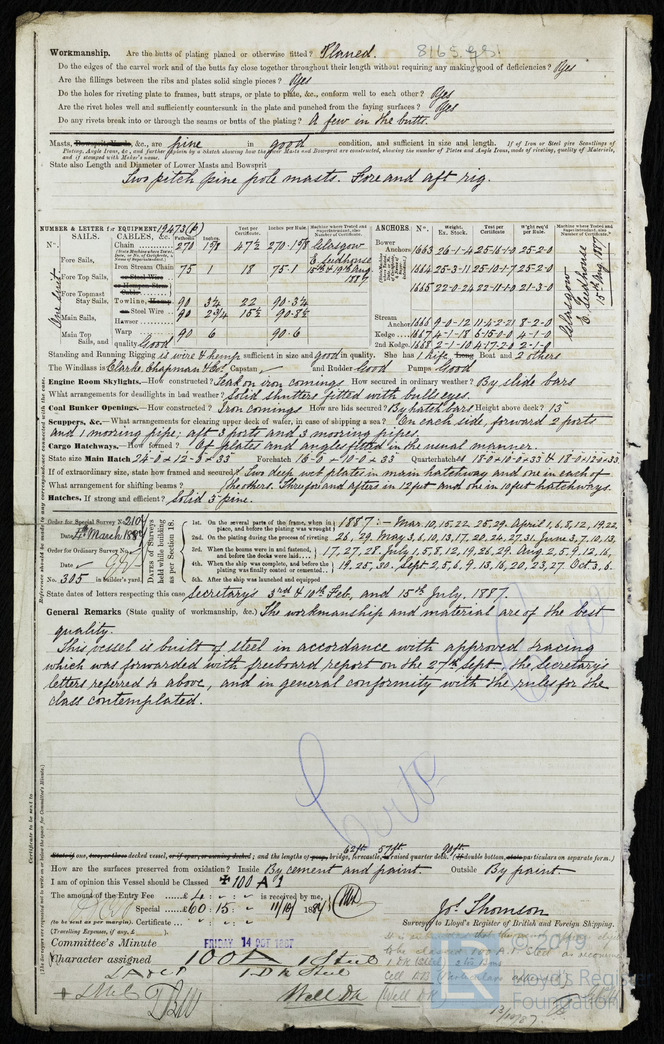 Workmanship. Are the butts of plating planed or otherwise fitted? Planed.
Do the edges of the carvel work and of the butts fay close together throughout their length without requiring any making good of deficiencies? Yes
Are the fillings between the ribs and plates solid single pieces? Yes
Do the holes for riveting plate to frames, butt straps, or plate to plate, &c., conform well to each other? Yes
Are the rivet holes well and sufficiently countersunk in the plate and punched from the faying surfaces? Yes
Do any rivets break into or through the seams or butts of the plating? A few in the butts.
Masts, Bowsprit, Yards, &c., are pine in good condition, and sufficient in size and length. If of Iron or Steel give Scantlings of
Plating, Angle Irons, &c., and further explain by a sketch showing how the Masts and Bowsprit are constructed, showing the number of Plates and Angle Irons, mode of riveting, quality of Materials,
and if stamped with Maker's name.
State also Length and Diameter of Lower Masts and Bowsprit
Two pitch pine pole masts. Fore and aft rig.
NUMBER & LETTER for EQUIPMENT 19473 (P)
SAILS. CABLES, &c. Fathoms. Inches. Test per Certificate. Inches per Rule. Machine where Tested and Superintendent, also Number of Certificate.
Chain 270 1 7/8 47 1/2 270-1 7/8 Glasgow
Fore Sails, E. Leidhouse
Iron Stream Chain 75 1 18 75-1 15th & 19th Aug. 1887
Fore Top Sails, or Steel Wire
or Hempen Strm Cable
Fore Topmast Stay Sails, Towline, Hemp 90 3 1/4 22 90-3 1/4
Main Sails, or Steel Wire 90 2 3/4 15 1/2 90-8 1/2
Hawser
Main Top Sails, and Warp 90 6 90-6
quality Good
One suit
ANCHORS. No. Weight. Ex. Stock. Test per Certificate W'ght req'd per Rule. Machine where Tested & Superintendent, also Number of Certificate
Bower Anchors 1663 26-1-4 25-16-1-0 25-2-0
1664 25-3-11 25-10-1-7 25-2-0
1665 22-0-24 22-11-1-0 21-3-0
Stream Anchor 1666 9-0-12 11-4-2-21 8-2-0
Kedge 1667 4-1-18 6-15-0-0 4-1-0
2nd Kedge 1668 2-1-10 4-17-2-0 2-1-0
Glasgow E. Leidhouse 15th Aug 1887
Standing and Running Rigging is wire & hemp sufficient in size and good in quality. She has 1 life Long Boat and 2 others
The Windlass is Clarke, Chapman & Co. Capstan and Rudder Good Pumps Good
Engine Room Skylights.—How constructed? Teak on iron comings How secured in ordinary weather? By slide bars
What arrangements for deadlights in bad weather? Solid shutters fitted with bullseyes.
Coal Bunker Openings.—How constructed? Iron comings How are lids secured? By hatch bars Height above deck? 15
Scuppers, &c.—What arrangements for clearing upper deck of water, in case of shipping a sea? On each side, forward 2 ports
and 1 mooring pipe; aft 3 ports and 3 mooring pipes.
Cargo Hatchways.—How formed? Of plates and angles fitted in the usual manner.
State size Main Hatch 24-0 × 12-3 × 33 Forehatch 16-0 × 10-0 × 33 Quarterhatch 18-0 × 10-0 × 33 & 18-0 × 12-0 × 33
If of extraordinary size, state how framed and secured? Two deep web plates in main hatchway and one in each of
What arrangement for shifting beams? the others. Three fore and afters in 12 feet and one in 10 feet hatchways.
Hatches. If strong and efficient? Solid 3 pine.
Order for Special Survey No. 2104
Date 4th March 1887
Order for Ordinary Survey No.
Date
No. 305 in builder's yard.
DATES of Surveys held while building as per Section 18.
1st. On the several parts of the frame, when in place, and before the plating was wrought 1887:- Mar. 10, 15, 22, 25, 29. April 1, 6, 8, 12, 19, 22,
2nd. On the plating during the process of riveting 26, 29. May 3, 6, 10, 13, 17, 20, 24, 27, 31. June 3, 7, 10, 13,
3rd. When the beams were in and fastened, and before the decks were laid 17, 27, 28. July 1, 5, 8, 12, 19, 26, 29. Aug. 2, 5, 9, 12, 16,
4th. When the ship was complete, and before the plating was finally coated or cemented 19, 25, 30. Sept. 2, 5, 6, 9, 13, 16, 20, 23, 27 Oct. 3, 6.
5th. After the ship was launched and equipped
State dates of letters respecting this case Secretary's 3rd & 10th Feb, and 15th July, 1887.
General Remarks (State quality of workmanship, &c.) The workmanship and material are of the best
quality.
This vessel is built of steel in accordance with approved tracing
which was forwarded with freeboard report on the 27th Sept, the Secretary's
letters referred to above, and in general conformity with the rules for the
class contemplated.
62ft 57ft 90ft
State if one, two, or three decked vessel, or if spar, or awning decked; and the lengths of poop, bridge, forecastle, raised quarter deck. (If double bottom, state particulars on separate form.)
How are the surfaces preserved from oxidation? Inside By cement and paint. Outside By paint.
I am of opinion this Vessel should be Classed ✠ 100 A 1
The amount of the Entry Fee £ 4 : - : - is received by me,
Special £ 60 : 15 : - 11/10/1887
(to be sent as per margin). Certificate
(Travelling Expenses, if any, £ ).
Jos. Thomson
Surveyor to Lloyd's Register of British and Foreign Shipping.
Committee's Minute FRIDAY 14 OCT 1887
Character assigned 100A 1 Steel
1 Dk Steel
+ LMC
Well Dk
13/10/87
© 2019
Lloyd's Register
Foundation
LR